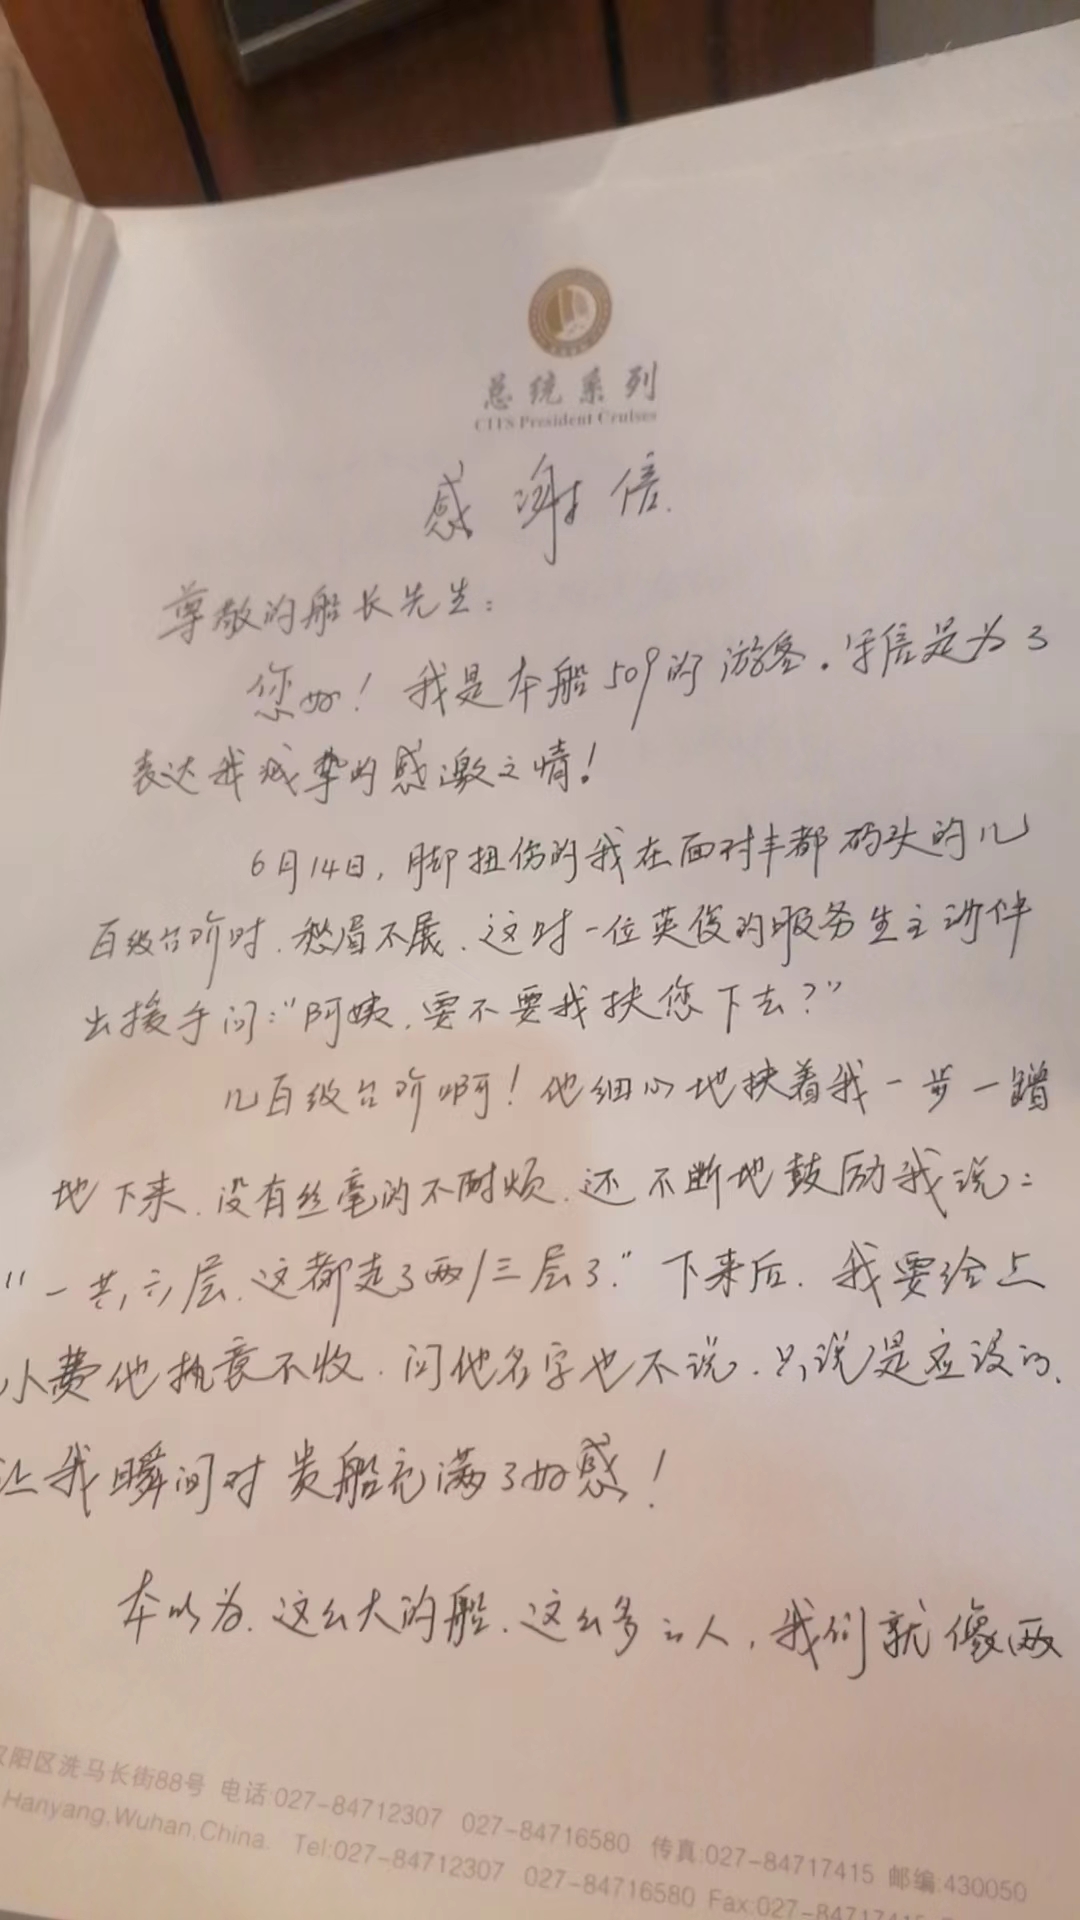 总统系列
CITS President Cruises
感谢信.
尊敬的船长先生：
您好！我是本船509的游客。写信是为了
表达我诚挚的感激之情！
6月14日，脚扭伤的我在面对丰都码头的几
百级台阶时、愁眉不展、这时一位英俊的服务生主动伸
出援手问：“阿姨，要不要我扶您下去？”
几百级台阶啊！他细心地扶着我一步一蹭
地下来、没有丝毫的不耐烦、还不断地鼓励我说：
“一共六层、这都走了两/三层了.”下来后、我要给点
小费他执意不收、问他名字也不说、只说是应该的、
让我瞬间对贵船充满了好感！
本以为、这么大的船、这么多的人，我们就像两
汉阳区洗马长街88号 电话:027-84712307 027-84716580 传真:027-84717415 邮编:430050
Hanyang,Wuhan,China. Tel:027-84712307 027-84716580 Fax:027-84717415